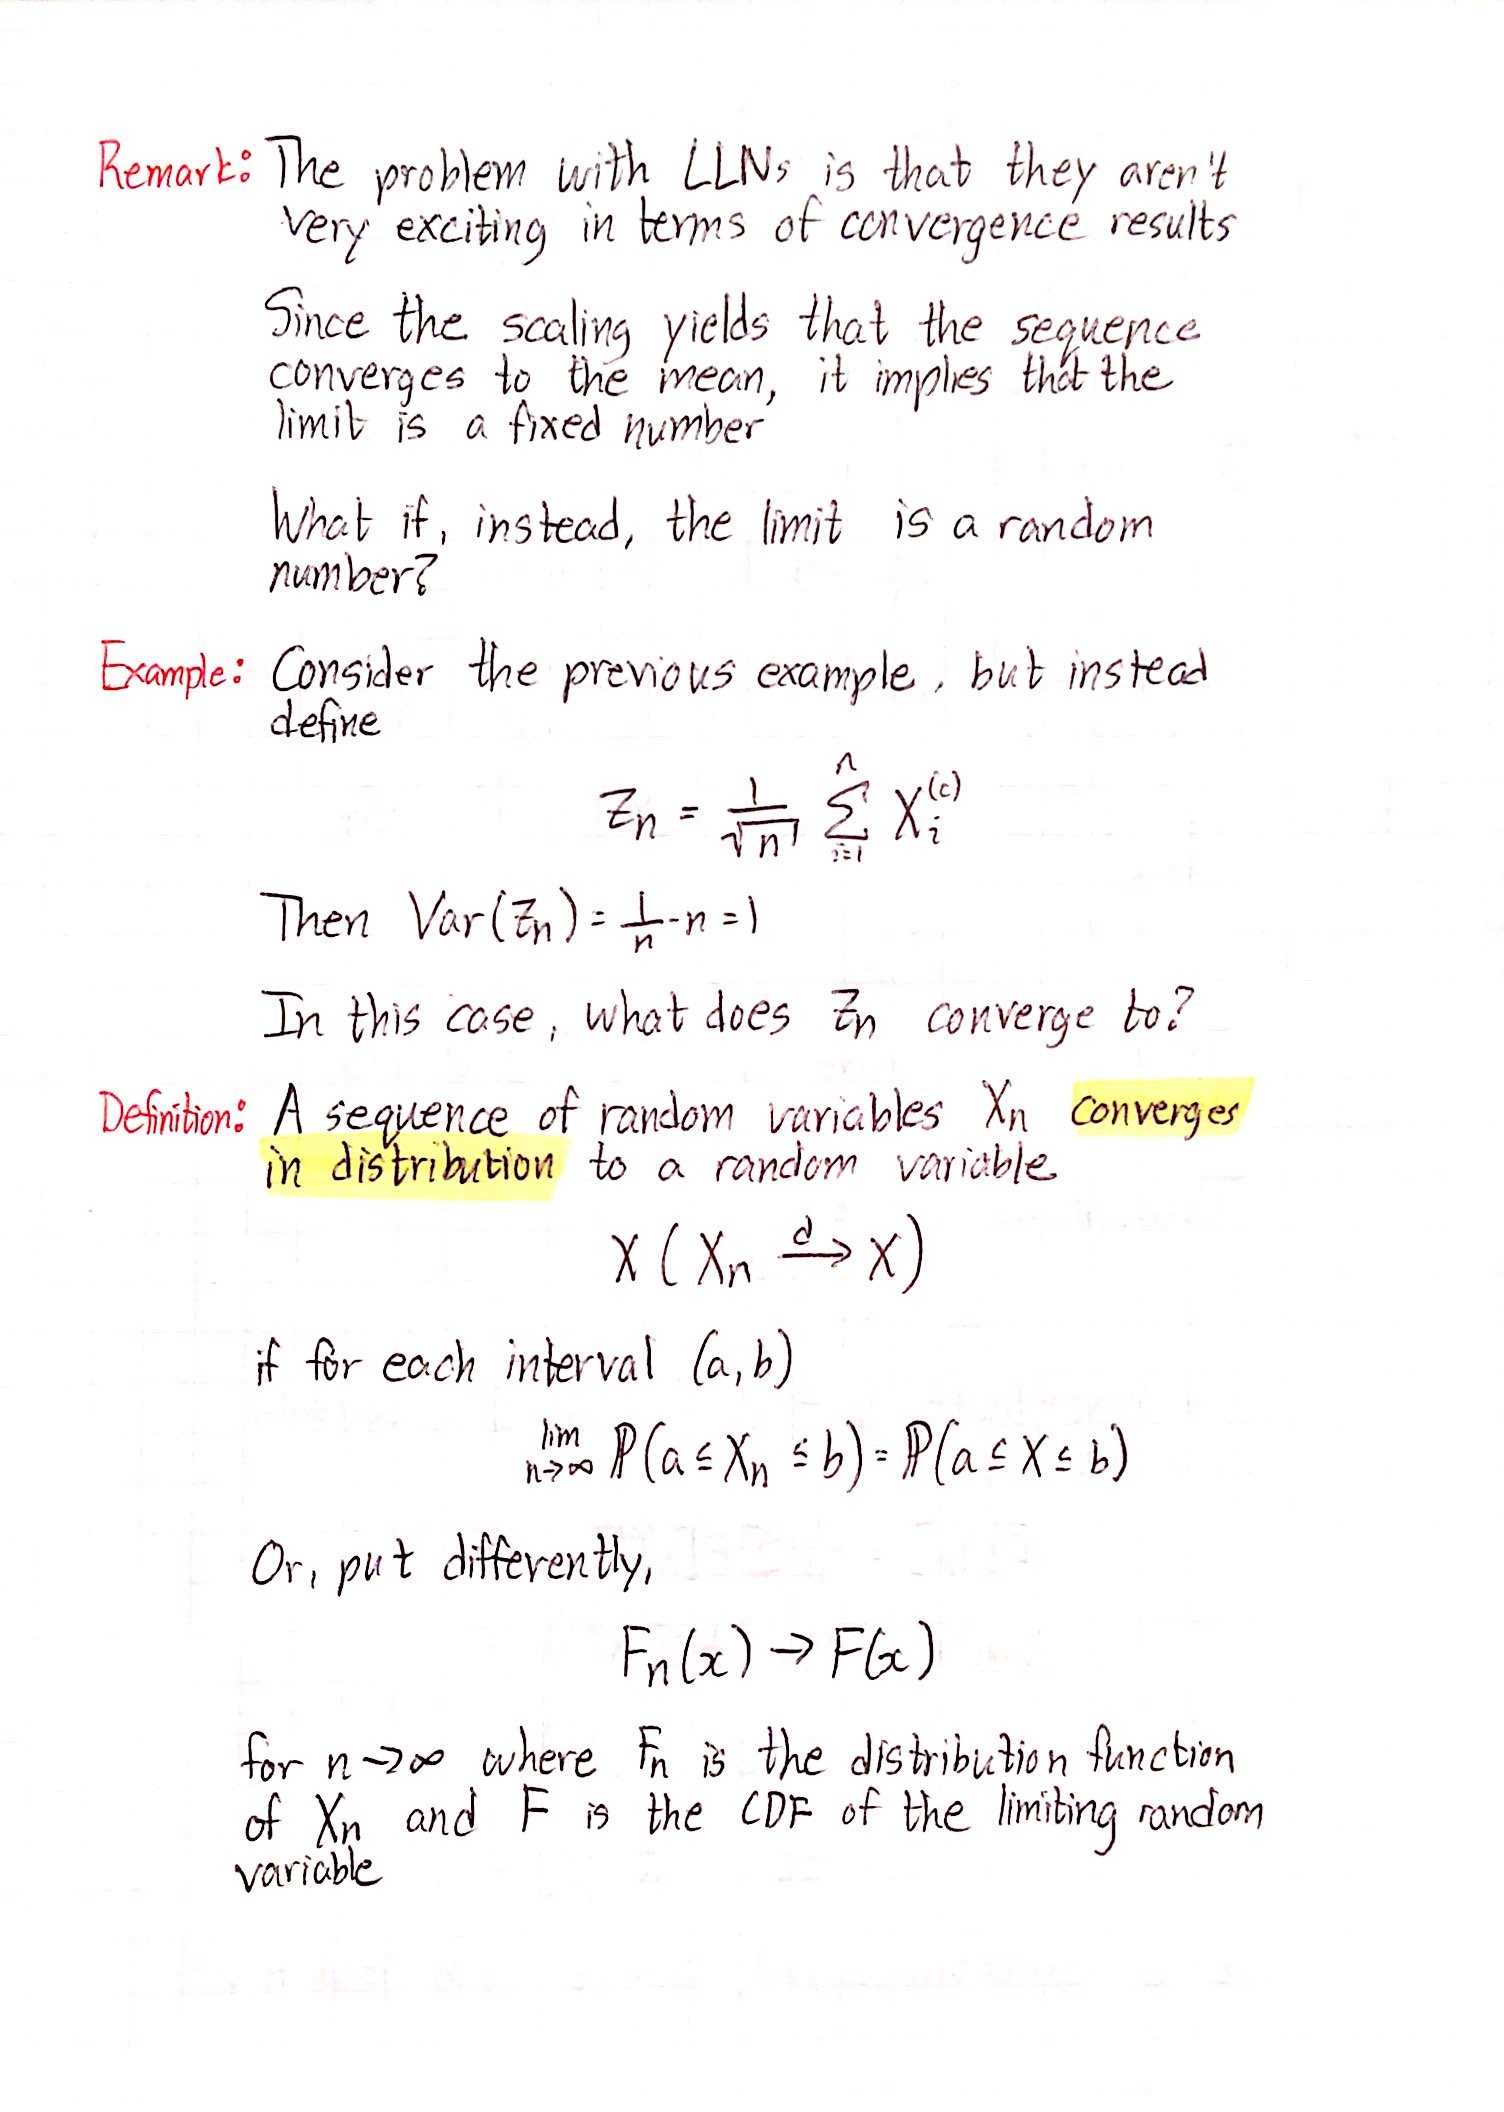 Remark: The problem with LLNs is that they aren't
very exciting in terms of convergence results
Since the scaling yields that the sequence
converges to the mean, it implies that the
limit is a fixed number
What if, instead, the limit is a random
number?
Example: Consider the previous example, but instead
define
Zₙ = 1/√n ∑ᵢ₌₁ⁿ Xᵢ⁽ᶜ⁾
Then Var(Zₙ) = 1/n · n = 1
In this case, what does Zₙ converge to?
Definition: A sequence of random variables Xₙ converges
in distribution to a random variable
X (Xₙ →ᵈ X)
if for each interval (a, b)
lim n→∞ ℙ(a ≤ Xₙ ≤ b) = ℙ(a ≤ X ≤ b)
Or, put differently,
Fₙ(x) → F(x)
for n→∞ where Fₙ is the distribution function
of Xₙ and F is the CDF of the limiting random
variable